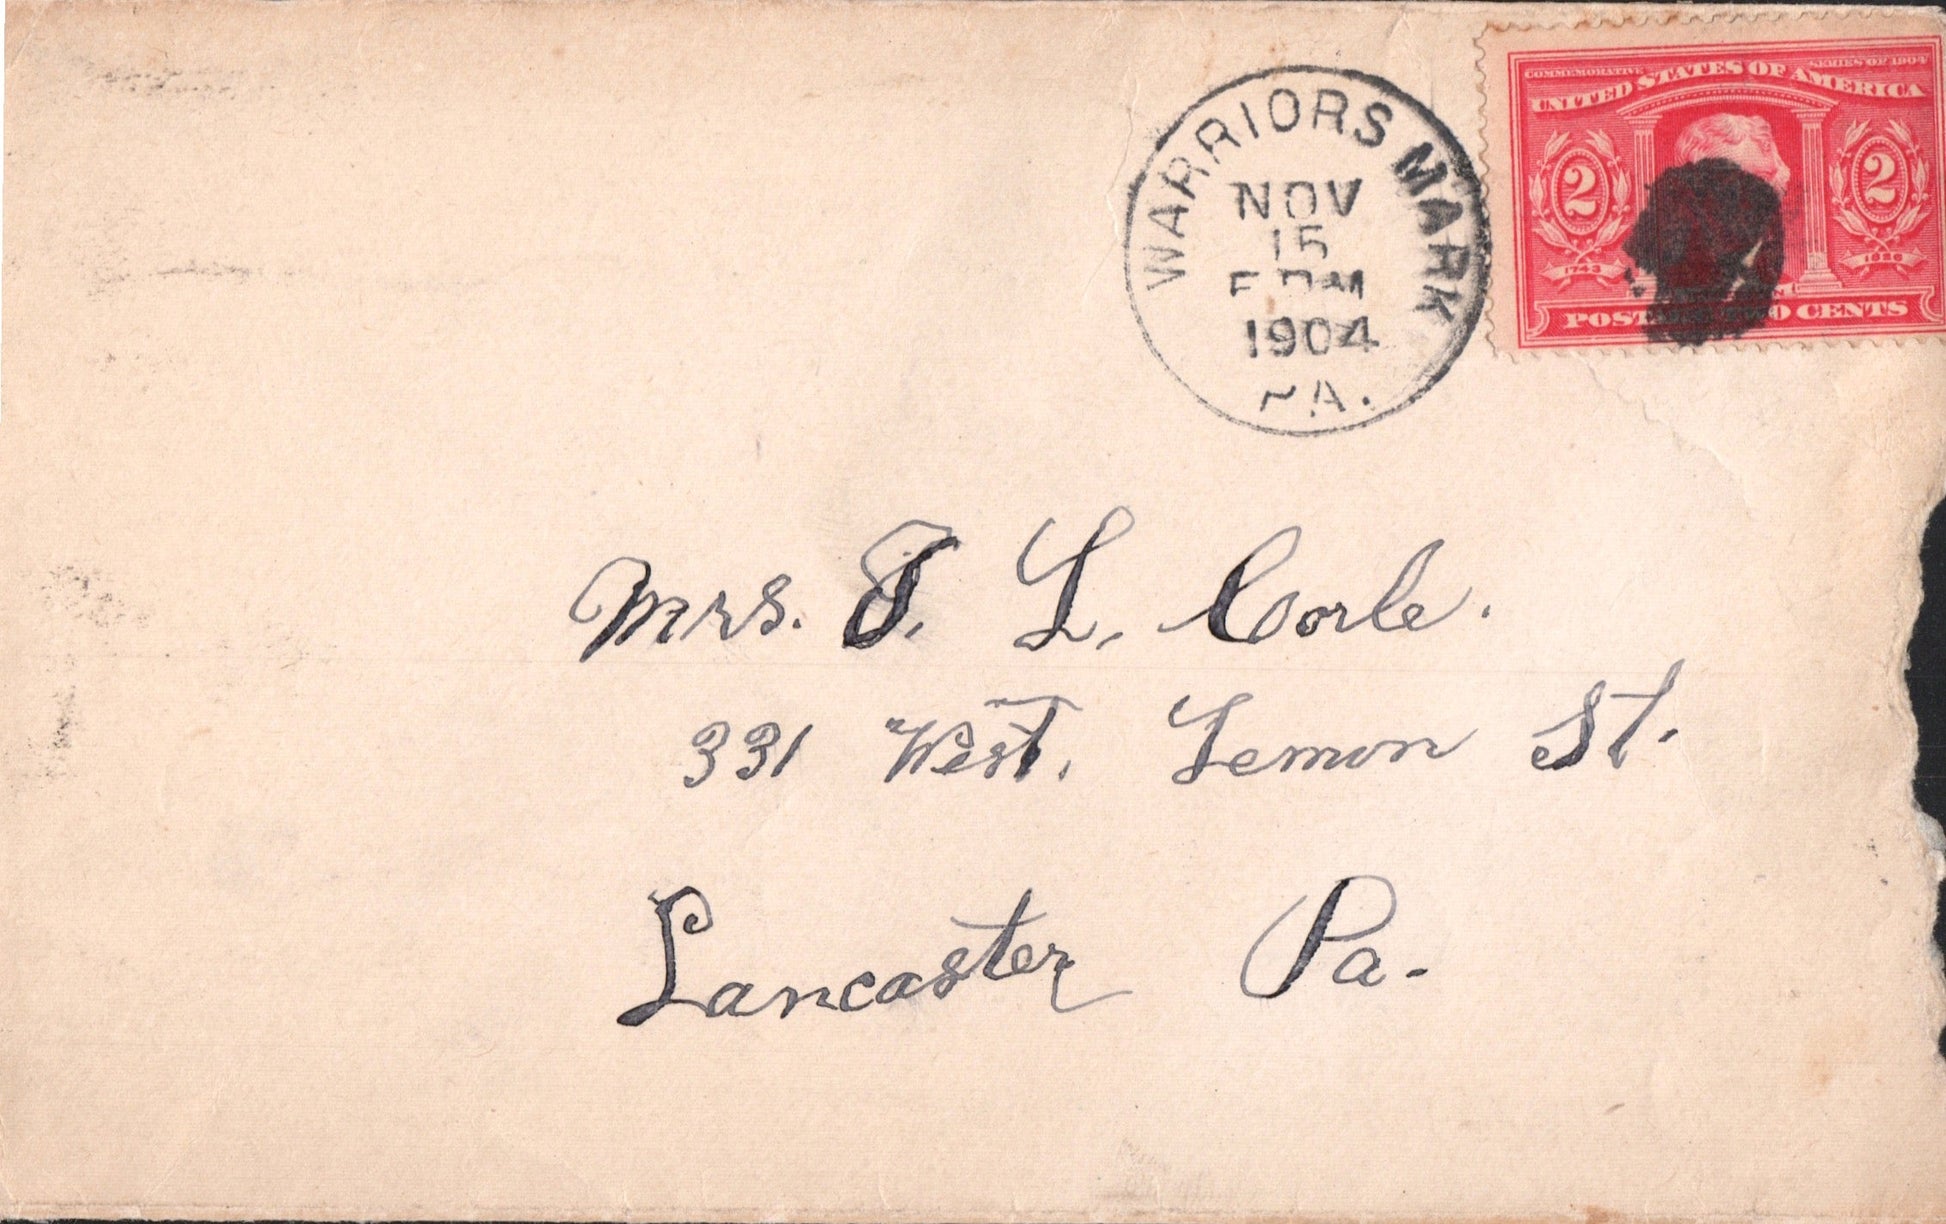 COMMEMORATIVE SERIES OF 1904
UNITED STATES OF AMERICA
2 2
1743 1826
TWO CENTS
WARRIORS MARK
NOV
15
1904
PA.
Mrs. T. L. Corle.
331 West. Lemon St.
Lancaster Pa.